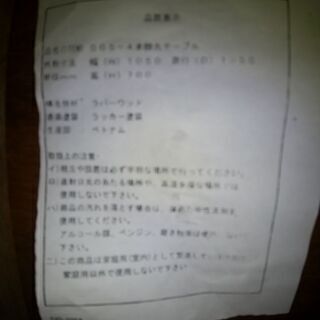 品質表示
４本脚丸テーブル
幅（Ｗ）１０５０ 奥行（Ｄ）１０５０
高（Ｈ）７００
構造部材 ラバーウッド
表面塗装 ラッカー塗装
生産国 ベトナム
取扱上の注意
イ）組立や設置は必ず平らな場所で行ってください。
ロ）直射日光のあたる場所や、高温多湿な場所では
使用しないで下さい。
ハ）商品の汚れを落とす場合は、薄めた中性洗剤を
使用してください。
アルコール類、ベンジン、磨き粉等は使用しないで
下さい。
ニ）この商品は家庭用（室内）として製造しています
家庭用以外で使用しないで下さい